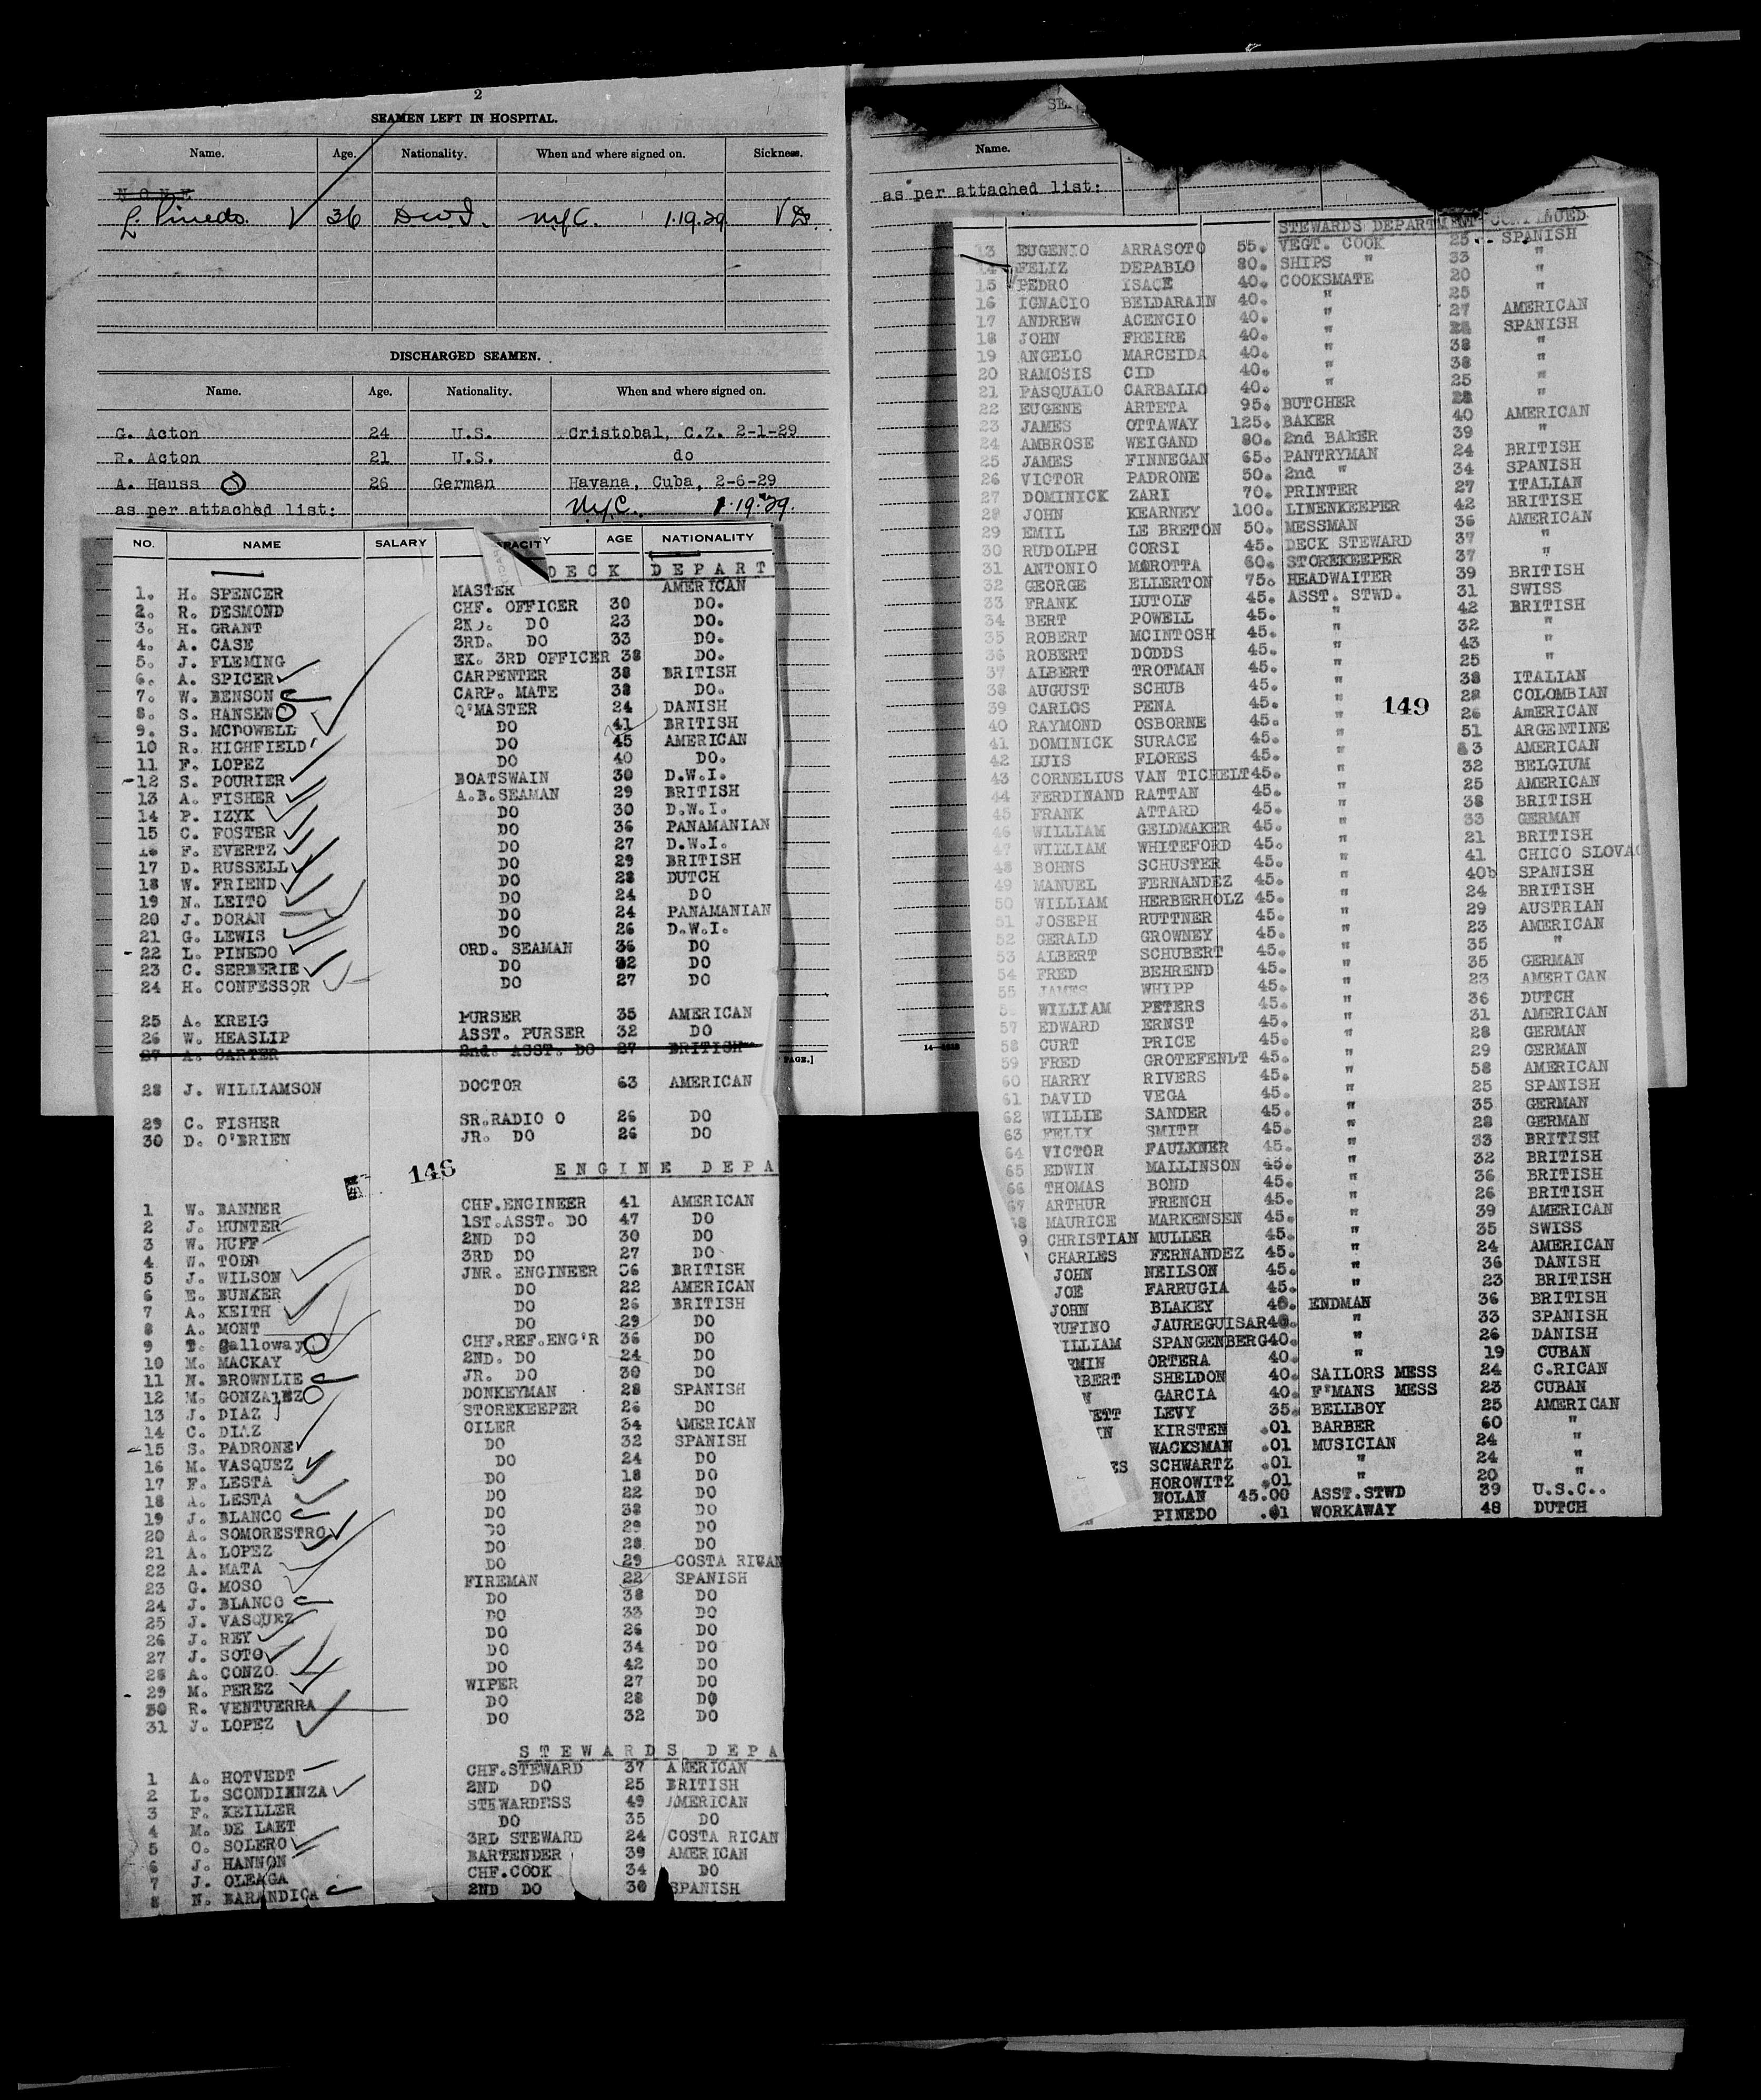 2
SEAMEN LEFT IN HOSPITAL.
Name. Age. Nationality. When and where signed on. Sickness.
NONE
L. Pinedo. 36 D.W.I. NYC. 1.19.29
DISCHARGED SEAMEN.
Name. Age. Nationality. When and where signed on.
G. Acton 24 U.S. Cristobal, C.Z. 2-1-29
R. Acton 21 U.S. do
A. Hauss 26 German Havana, Cuba, 2-6-29
as per attached list: NYC. 1.19.29.
NO. NAME SALARY AGE NATIONALITY
DECK DEPART
1. H. SPENCER MASTER AMERICAN
2. R. DESMOND CHF. OFFICER 30 DO.
3. H. GRANT 2ND. DO 23 DO.
4. A. CASE 3RD. DO 33 DO.
5. J. FLEMING EX. 3RD OFFICER 38 DO.
6. A. SPICER CARPENTER 38 BRITISH
7. W. BENSON CARP. MATE 38 DO.
8. S. HANSEN Q'MASTER 24 DANISH
9. S. MCDOWELL DO 41 BRITISH
10 R. HIGHFIELD DO 45 AMERICAN
11 F. LOPEZ DO 40 DO.
-12 S. POURIER BOATSWAIN 30 D.W.I.
13 A. FISHER A.B.SEAMAN 29 BRITISH
14 P. IZYK DO 30 D.W.I.
15 C. FOSTER DO 36 PANAMANIAN
16 F. EVERTZ DO 27 D.W.I.
17 D. RUSSELL DO 29 BRITISH
18 W. FRIEND DO 28 DUTCH
19 N. LEITO DO 24 DO
20 J. DORAN DO 24 PANAMANIAN
21 G. LEWIS DO 26 D.W.I.
-22 L. PINEDO ORD. SEAMAN 36 DO
23 C. SERBERIE DO 32 DO
24 H. CONFESSOR DO 27 DO
25 A. KREIG PURSER 35 AMERICAN
26 W. HEASLIP ASST. PURSER 32 DO
27 A. CARTER 2nd. ASST. DO 27 BRITISH
28 J. WILLIAMSON DOCTOR 63 AMERICAN
29 C. FISHER SR.RADIO O 26 DO
30 D. O'BRIEN JR. DO 26 DO
PAGE.]
146
ENGINE DEPA
1 W. BANNER CHF.ENGINEER 41 AMERICAN
2 J. HUNTER 1ST.ASST. DO 47 DO
3 W. HUFF 2ND DO 30 DO
4 W. TODD 3RD DO 27 DO
5 J. WILSON JNR. ENGINEER 36 BRITISH
6 E. BUNKER DO 22 AMERICAN
7 A. KEITH DO 26 BRITISH
8 A. MONT DO 29 DO
9 T. Galloway CHF.REF.ENG'R 36 DO
10 M. MACKAY 2ND. DO 24 DO
11 N. BROWNLIE JR. DO 30 DO
12 M. GONZALEZ DONKEYMAN 28 SPANISH
13 J. DIAZ STOREKEEPER 26 DO
14 C. DIAZ OILER 34 AMERICAN
-15 S. PADRONE DO 32 SPANISH
16 M. VASQUEZ DO 24 DO
17 F. LESTA DO 18 DO
18 A. LESTA DO 22 DO
19 J. BLANCO DO 38 DO
20 A. SOMORESTRO DO 29 DO
21 A. LOPEZ DO 28 DO
22 A. MATA DO 29 COSTA RICAN
23 G. MOSO FIREMAN 22 SPANISH
24 J. BLANCO DO 38 DO
25 J. VASQUEZ DO 33 DO
26 J. REY DO 26 DO
27 J. SOTO DO 34 DO
28 A. CONZO DO 42 DO
-29 M. PEREZ WIPER 27 DO
30 R. VENTUERRA DO 28 DO
31 J. LOPEZ DO 32 DO
STEWARDS DEPA
1 A. HOTVEDT CHF.STEWARD 37 AMERICAN
2 L. SCONDIANZA 2ND DO 25 BRITISH
3 F. KEILLER STEWARDESS 49 AMERICAN
4 M. DE LAET DO 35 DO
5 O. SOLERO 3RD STEWARD 24 COSTA RICAN
6 J. HANNON BARTENDER 39 AMERICAN
7 J. OLEAGA CHF.COOK 34 DO
8 N. BARANDICA 2ND DO 30 SPANISH
Name.
as per attached list:
STEWARDS DEPARTMENT CONTINUED
13 EUGENIO ARRASOTO 55. VEGT. COOK 25 SPANISH
14 FELIZ DEPABLO 80. SHIPS " 33 "
15 PEDRO ISACE 40. COOKSMATE 20 "
16 IGNACIO BELDARAIN 40. " 25 "
17 ANDREW ACENCIO 40. " 27 AMERICAN
18 JOHN FREIRE 40. " SPANISH
19 ANGELO MARCEIDA 40. " 38 "
20 RAMOSIS CID 40. " 38 "
21 PASQUALO CARBALLO 40. " 25 "
22 EUGENE ARTETA 95. BUTCHER 28 "
23 JAMES OTTAWAY 125. BAKER 40 AMERICAN
24 AMBROSE WEIGAND 80. 2nd BAKER 39 "
25 JAMES FINNEGAN 65. PANTRYMAN 24 BRITISH
26 VICTOR PADRONE 50. 2nd " 34 SPANISH
27 DOMINICK ZARI 70. PRINTER 27 ITALIAN
28 JOHN KEARNEY 100. LINENKEEPER 42 BRITISH
29 EMIL LE BRETON 50. MESSMAN 36 AMERICAN
30 RUDOLPH CORSI 45. DECK STEWARD 37 "
31 ANTONIO MAROTTA 60. STOREKEEPER 37 "
32 GEORGE ELLERTON 75. HEADWAITER 39 BRITISH
33 FRANK LUTOLF 45. ASST. STWD. 31 SWISS
34 BERT POWELL 45. " 42 BRITISH
35 ROBERT MCINTOSH 45. " 32 "
36 ROBERT DODDS 45. " 43 "
37 ALBERT TROTMAN 45. " 25 "
38 AUGUST SCHUB 45. " 38 ITALIAN
39 CARLOS PENA 45. " 28 COLOMBIAN
149
40 RAYMOND OSBORNE 45. " 26 AmERICAN
41 DOMINICK SURACE 45. " 51 ARGENTINE
42 LUIS FLORES 45. " 3 AMERICAN
43 CORNELIUS VAN TICHELT 45. " 32 BELGIUM
44 FERDINAND RATTAN 45. " 25 AMERICAN
45 FRANK ATTARD 45. " 38 BRITISH
46 WILLIAM GELDMAKER 45. " 33 GERMAN
47 WILLIAM WHITEFORD 45. " 21 BRITISH
48 BOHNS SCHUSTER 45. " 41 CHICO SLOVAC
49 MANUEL FERNANDEZ 45. " 40b SPANISH
50 WILLIAM HERBERHOLZ 45. " 24 BRITISH
51 JOSEPH RUTTNER 45. " 29 AUSTRIAN
52 GERALD GROWNEY 45. " 23 AMERICAN
53 ALBERT SCHUBERT 45. " 35 "
54 FRED BEHREND 45. " 35 GERMAN
55 JAMES WHIPP 45. " 23 AMERICAN
WILLIAM PETERS 45. " 36 DUTCH
57 EDWARD ERNST 45. " 31 AMERICAN
58 CURT PRICE 45. " 28 GERMAN
59 FRED GROTEFENLT 45. " 29 GERMAN
60 HARRY RIVERS 45. " 58 AMERICAN
61 DAVID VEGA 45. " 25 SPANISH
62 WILLIE SANDER 45. " 35 GERMAN
63 FELIX SMITH 45. " 28 GERMAN
64 VICTOR FAULKNER 45. " 33 BRITISH
65 EDWIN MALLINSON 45. " 32 BRITISH
66 THOMAS BOND 45. " 36 BRITISH
67 ARTHUR FRENCH 45. " 26 BRITISH
68 MAURICE MARKENSEN 45. " 39 AMERICAN
9 CHRISTIAN MULLER 45. " 35 SWISS
CHARLES FERNANDEZ 45. " 24 AMERICAN
JOHN NEILSON 45. " 36 DANISH
JOE FARRUGIA 45. " 23 BRITISH
JOHN BLAKEY 40. ENDMAN 36 BRITISH
RUFINO JAUREGUISAR 40. " 33 SPANISH
ILLIAM SPANGENBERG 40. " 26 DANISH
RMIN ORTERA 40. " 19 CUBAN
RBERT SHELDON 40. SAILORS MESS 24 C.RICAN
N GARCIA 40. F'MANS MESS 23 CUBAN
ETT LEVY 35. BELLBOY 25 AMERICAN
IN KIRSTEN .01 BARBER 60 "
WACKSMAN .01 MUSICIAN 24 "
ES SCHWARTZ .01 " 24 "
HOROWITZ .01 " 20 "
NOLAN 45.00 ASST.STWD 39 U.S.C..
PINEDO .01 WORKAWAY 48 DUTCH